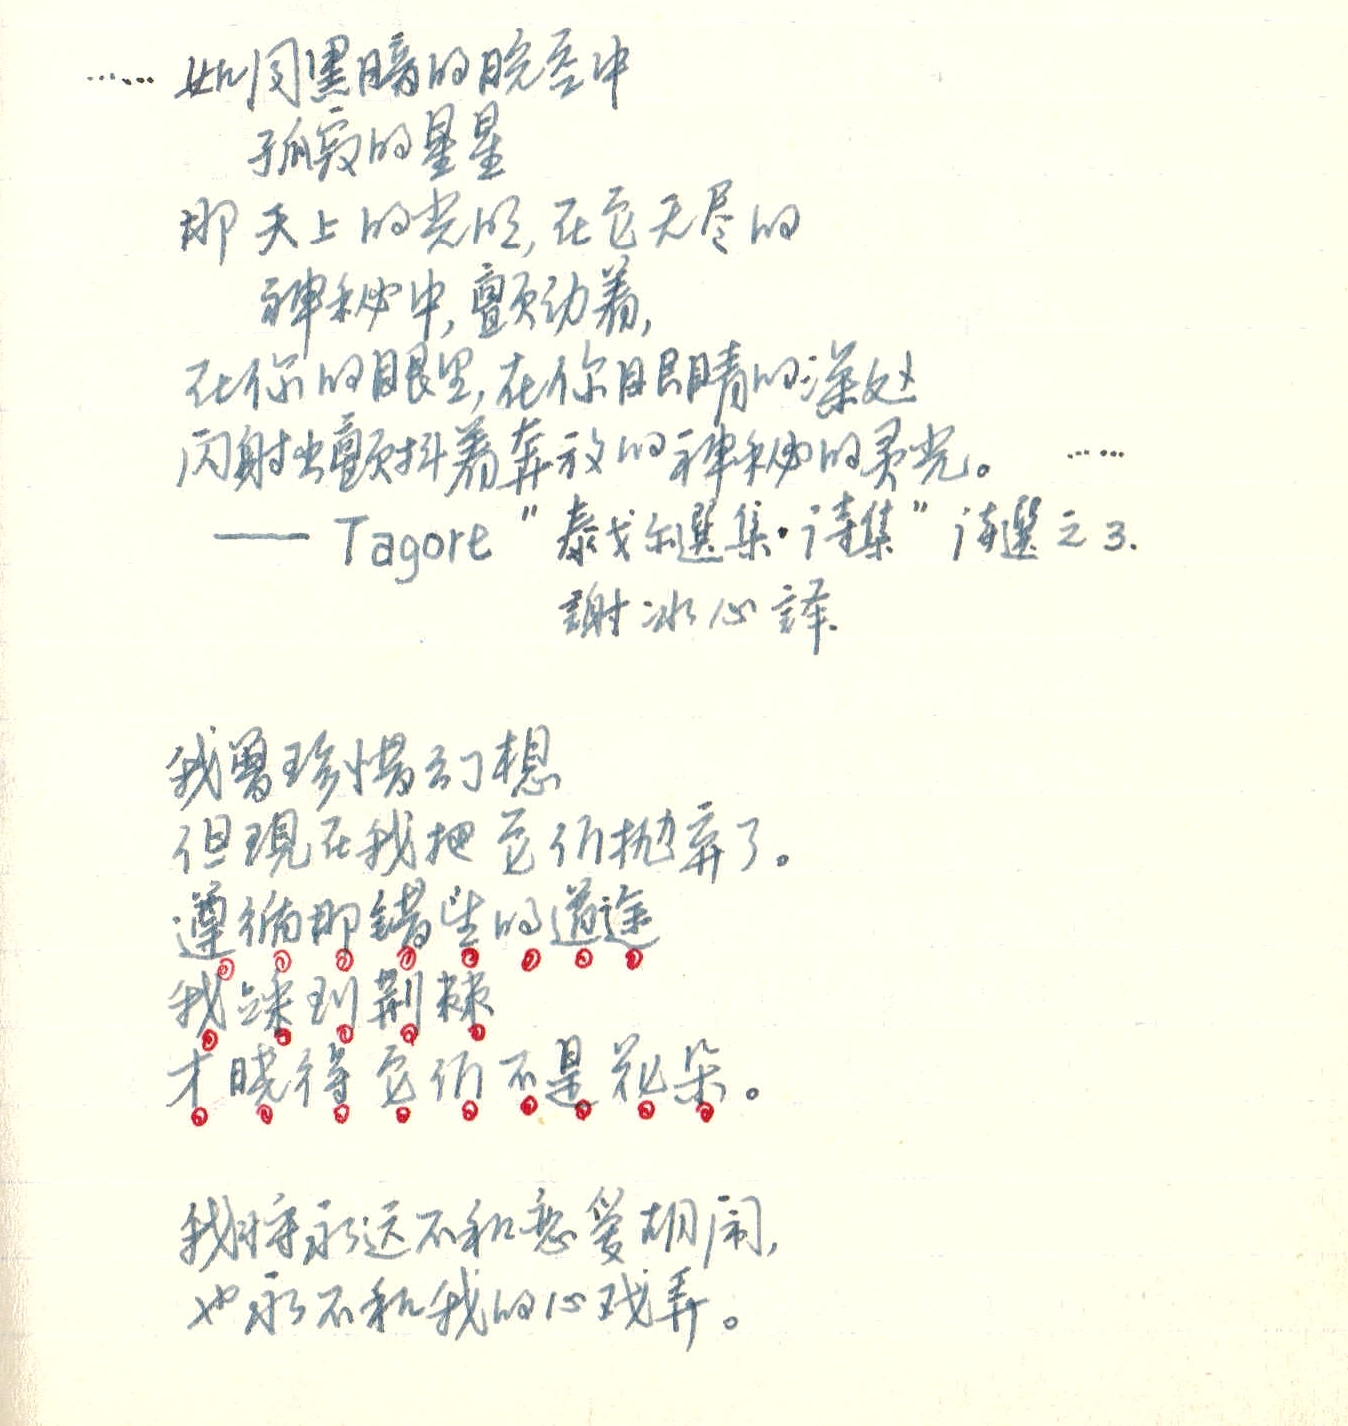 ……如同黑暗的晚空中
孤寂的星星
那天上的光明,在它无尽的
神秘中,颤动着,
在你的眼里,在你眼睛的深处
闪射出颤抖着奔放的神秘的灵光。……
—— Tagore "泰戈尔選集·诗集" 诗選之3.
謝冰心譯.
我曾珍惜幻想
但現在我把它们抛弃了。
遵循那错望的道途
我踩到荆棘
才晓得它们不是花朵。
我将永远不和恋爱胡闹,
也永不和我的心戏弄。